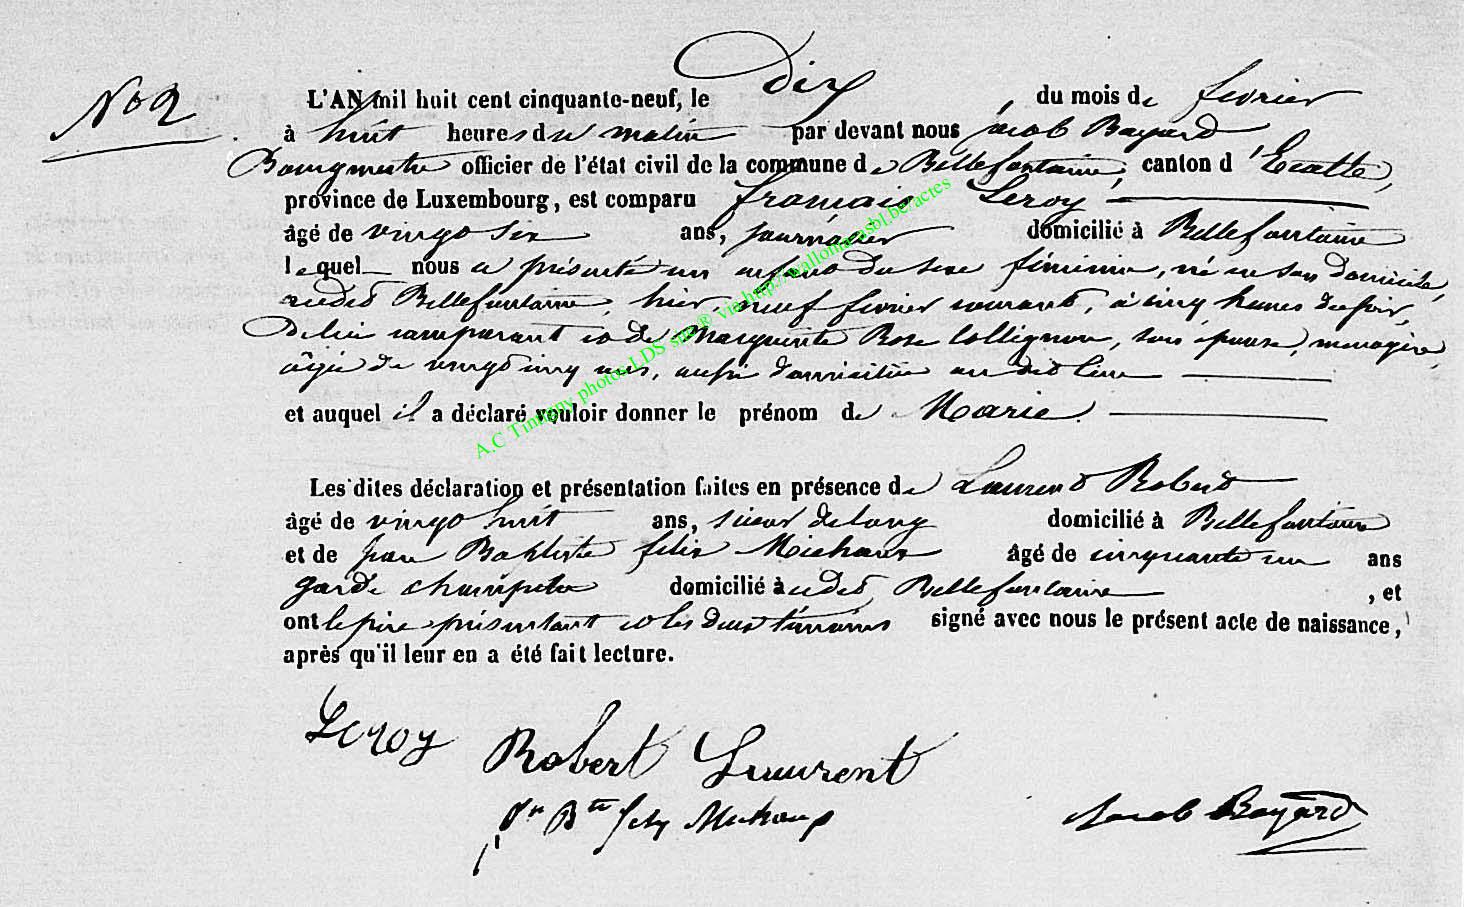 No 2
L'AN mil huit cent cinquante-neuf, le dix, du mois de fevrier
à huit heures du matin par devant nous Jacob Bayard
Bourgmestre officier de l'état civil de la commune de Bellefontaine, canton d'Etalle,
province de Luxembourg, est comparu françois Leroy
âgé de vingt six ans, journalier domicilié à Bellefontaine
lequel nous a présenté un enfant du sexe féminin, né en son domicile,
audit Bellefontaine, hier, neuf fevrier courant, à cinq heures du soir,
De lui comparant et de Marguerite Rose Collignon, son épouse, menagère,
âgée de vingt cinq ans, aussi domiciliée au dit lieu
et auquel il a déclaré vouloir donner le prénom de Marie
Les dites déclaration et présentation faites en présence de Laurent Robert
âgé de vingt huit ans, scieur de long domicilié à Bellefontaine
et de jean Baptiste félix Michaux âgé de cinquante un ans
garde champetre domicilié audit Bellefontaine, et
ont le père présentant et les deux témoins signé avec nous le présent acte de naissance,
après qu'il leur en a été fait lecture.
Leroy
Robert Laurent
Jn Bte Felix Michaux
Jacob Bayard
A.C Tintigny photos LDS site® via http://wallonia.asbl.be/actes